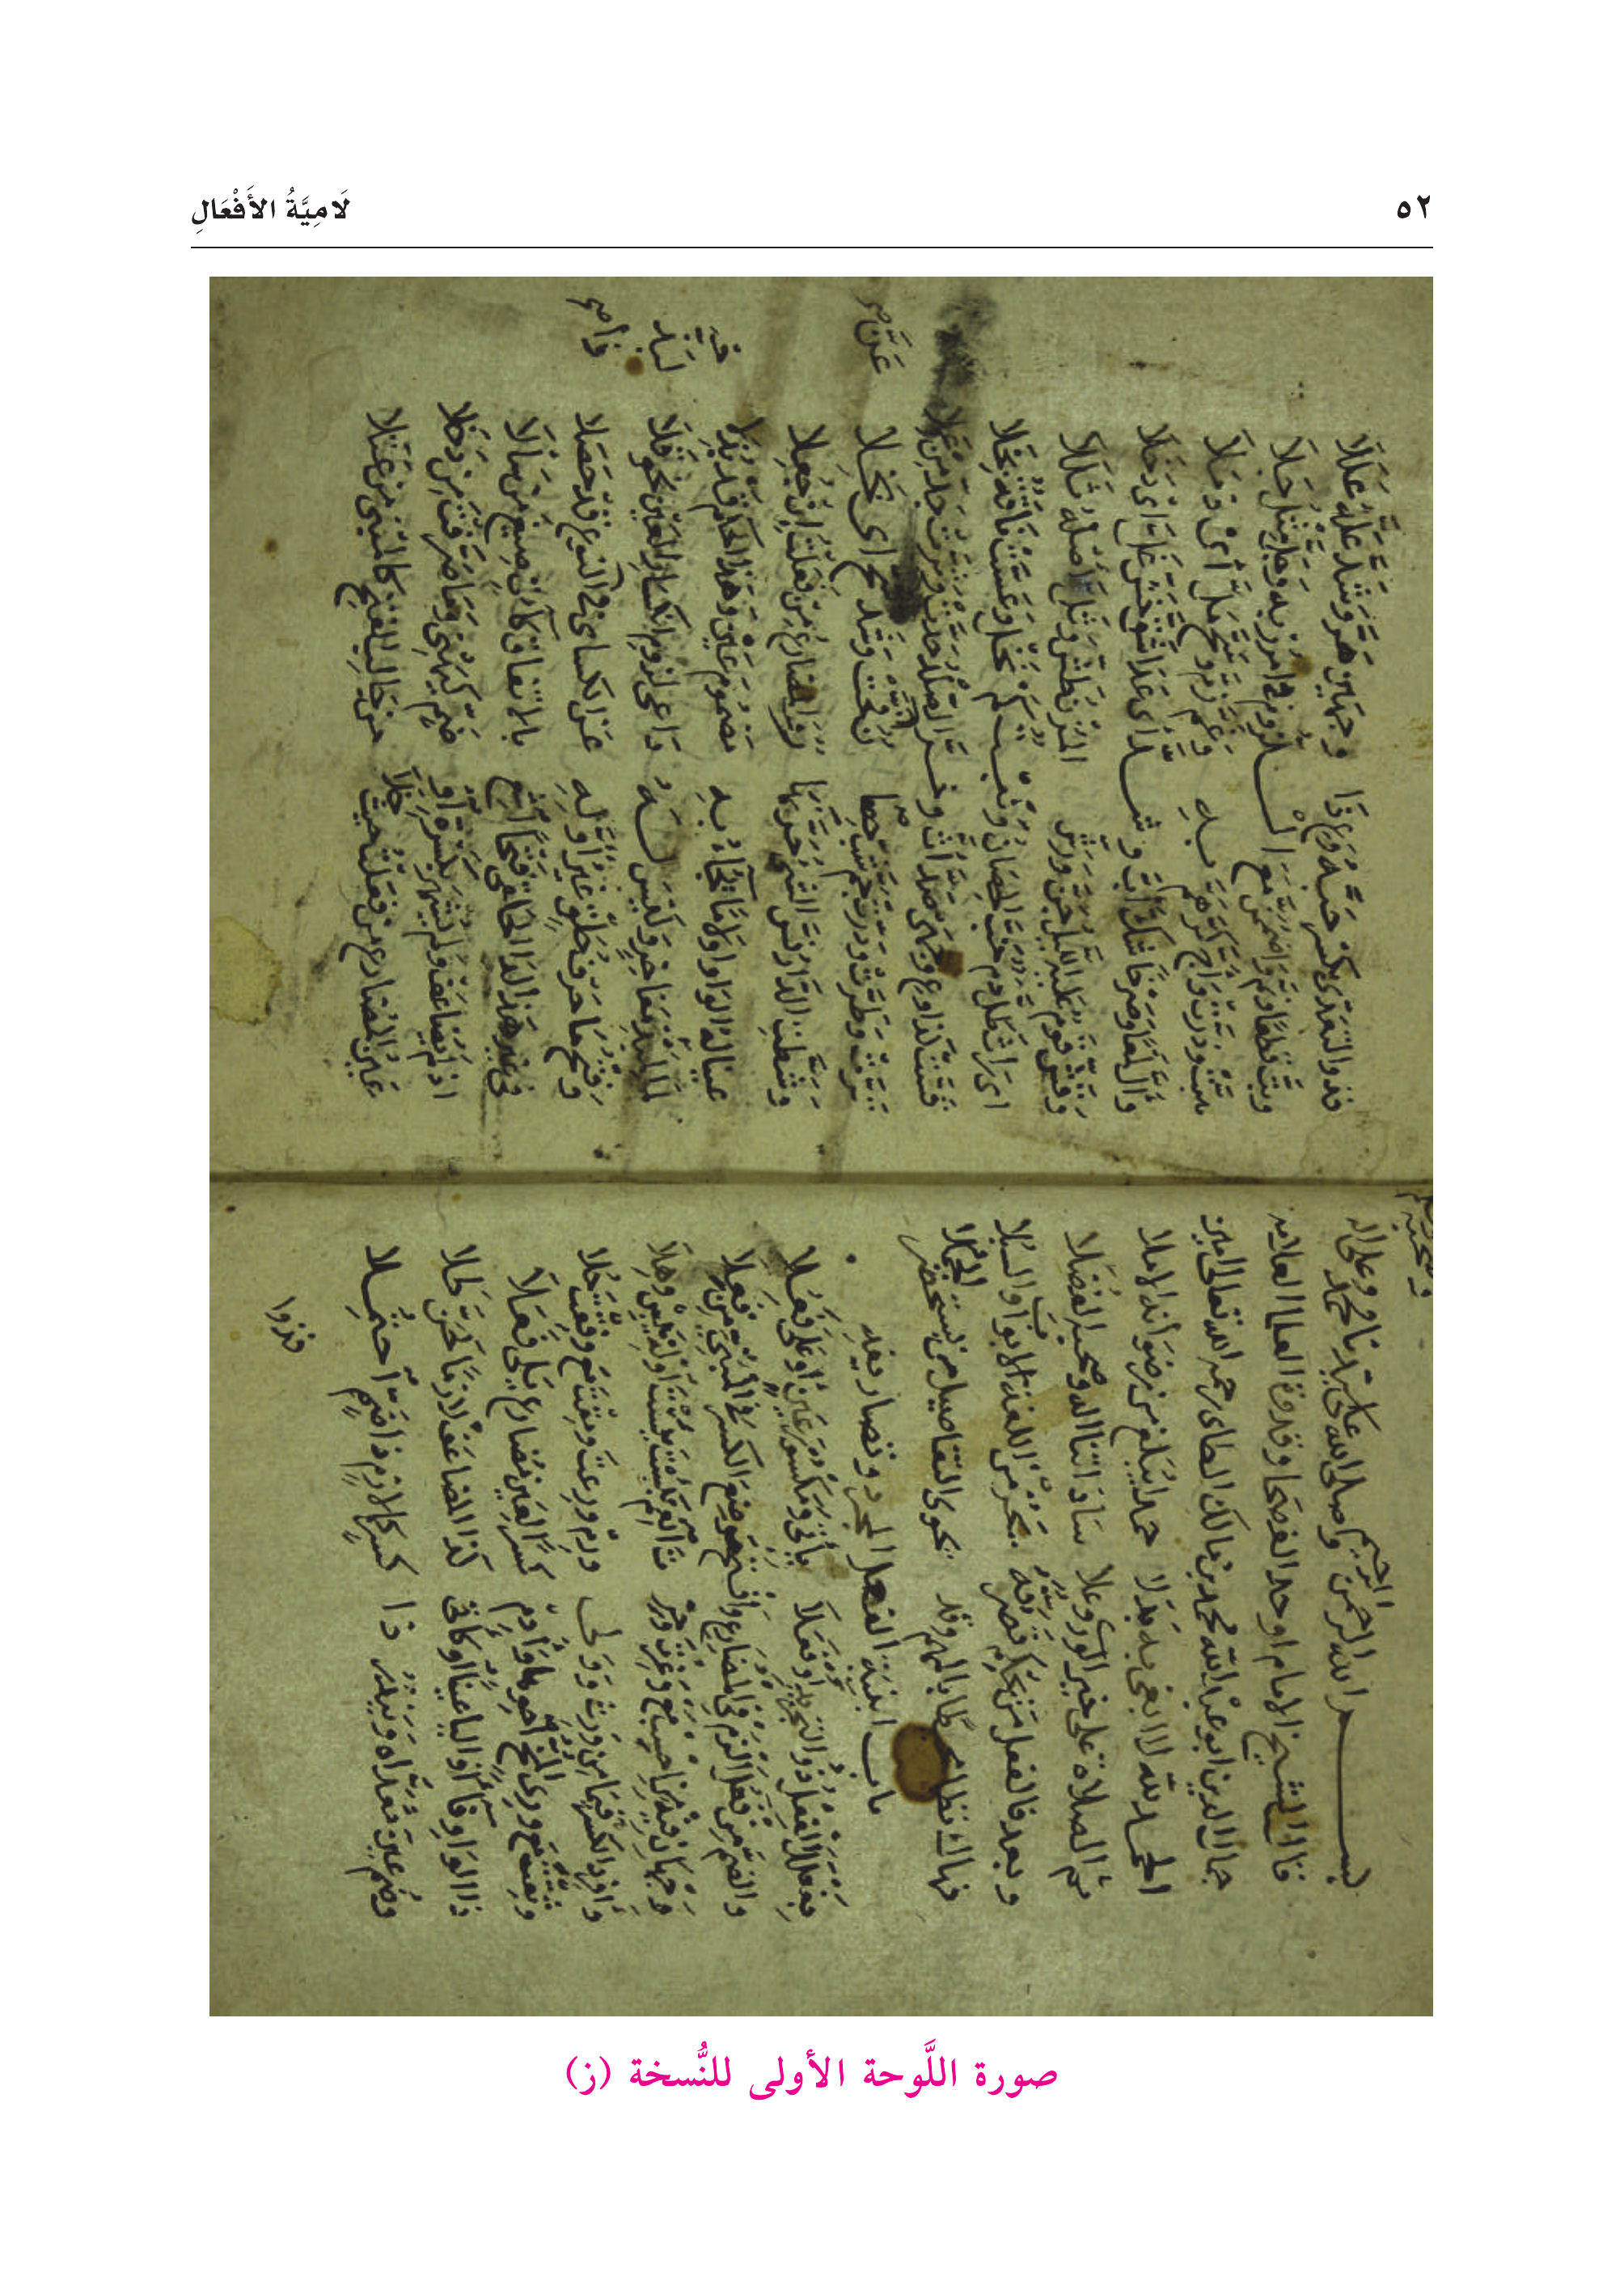 ٥٢
لَامِيَّةُ الأَفْعَالِ
بسم الله الرحمن الرحيم وصلى الله على سيدنا محمد وعلى اله وصحبه وسلم
قال الشيخ الامام اوحد الفصحا وقدوة العلما العلامه
جمال الدين ابو عبد الله محمد بن مالك الطاى رحمه الله تعالى امين
الحمد لله لا ابغى به بدلا حمدا يبلغ من رضوانه الاملا
ثم الصلاة على خير الورى وعلا ساداتنا اله وصحبه الفضلا
وبعد فالفعل من يحكم تصرفه يحز من اللغة الابواب والسبلا
فهاك نظما محيطا بالمهم وقد يحوى التفاصيل من يستحضر الجملا
باب ابنية الفعل المجرد وتصاريفه
بفعلل الفعل ذو التجريد او فعلا ياتى ومكسور عين او على فعلا
والضم من فعل الزم فى المضارع وافتح موضع الكسر فى المبنى من فعلا
وجهان فيه من احسب مع وغرت وحرت انعم بئست يئست اوله يبس وهلا
وافرد الكسر فيما من ورث وولى ورم ورعت ومقت مع وفقت حلا
وثقت مع ورى المخ احوها وادم كسرا لعين مضارع يلى فعلا
ذا الواو فاء او اليا عينا او كاتى كذا المضاعف لازما كحن طلا
وضم عين معداه ويندر ذا كسر كما لازم ذا ضم احتملا
فذوا
فذو التعدى بكسر حبه وع ذا وجهين هر وشد عله عللا
وبت قطعا ونم واضممن مع اللزوم فى امرر به وجل مثل جلا
هبت وذرت واج كر هم به وعم زم وسح مل اى ذملا
وال لمعا وصرخا شك اب وشد اى عدا شق خش غل اى دخلا
وقش قوم عليه الليل جن ورش المزن طش وثل اصله ثللا
اى راث طل دم خب الحصان ونبت كم نخل وعست ناقة بخلا
قست كذا وع وجهى صد اث وخر الصلد حدت وثرت جد من عملا
ترت وطرت ودرت جم شب حصا ن فحت وشذ شح اى بخلا
وشطت الدار نس الشى حر نها ر والمضارع من فعلت ان جعلا
عينا له الواو او لاما يجاء به مضموم عين وهذا الحكم قد بذلا
لما لبذ مفاخر وليس له داعى لزوم انكسار العين نحو قلا
وفتح ما حرف حلق غير اوله عن الكساى فى ذا النوع قد حصلا
فى غير هذا لذا الحلقى فتحا اشع بالاتفاق كآت صيغ من سالا
ان لم يضاعف ولم يشهر بكسرة او ضم كيبغى وما صرفت من دخلا
عين المضارع من فعلت حيث خلا من جالب الفتح كالمبنى من عتلا
صورة اللَّوحة الأولى للنُّسخة (ز)